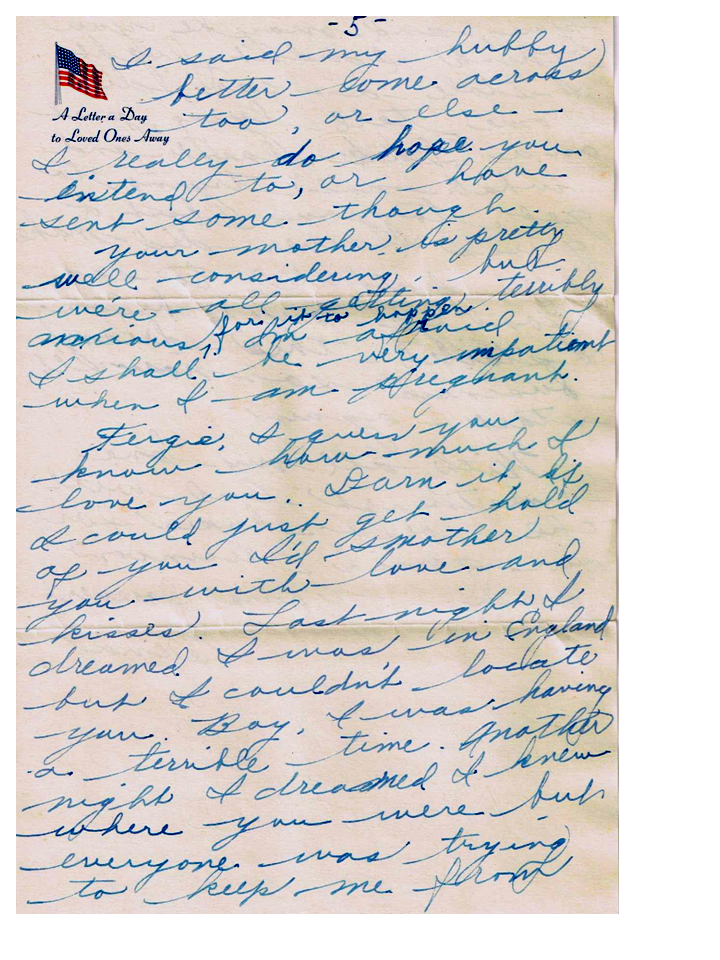 -5-
I said my hubby
better come across
too, or else —
A Letter a Day
to Loved Ones Away
I really do hope you
intend to, or have
sent some though.
Your mother is pretty
well considering, but
we're all getting terribly
anxious for it to happen. I'm afraid
I shall be very impatient
when I am pregnant.
Fergie, I guess you
know how much I
love you. Darn it, if
I could just get hold
of you I'd smother
you with love and
kisses. Last night I
dreamed I was in England
but I couldn't locate
you. Boy, I was having
a terrible time. Another
night I dreamed I knew
where you were but
everyone was trying
to keep me from